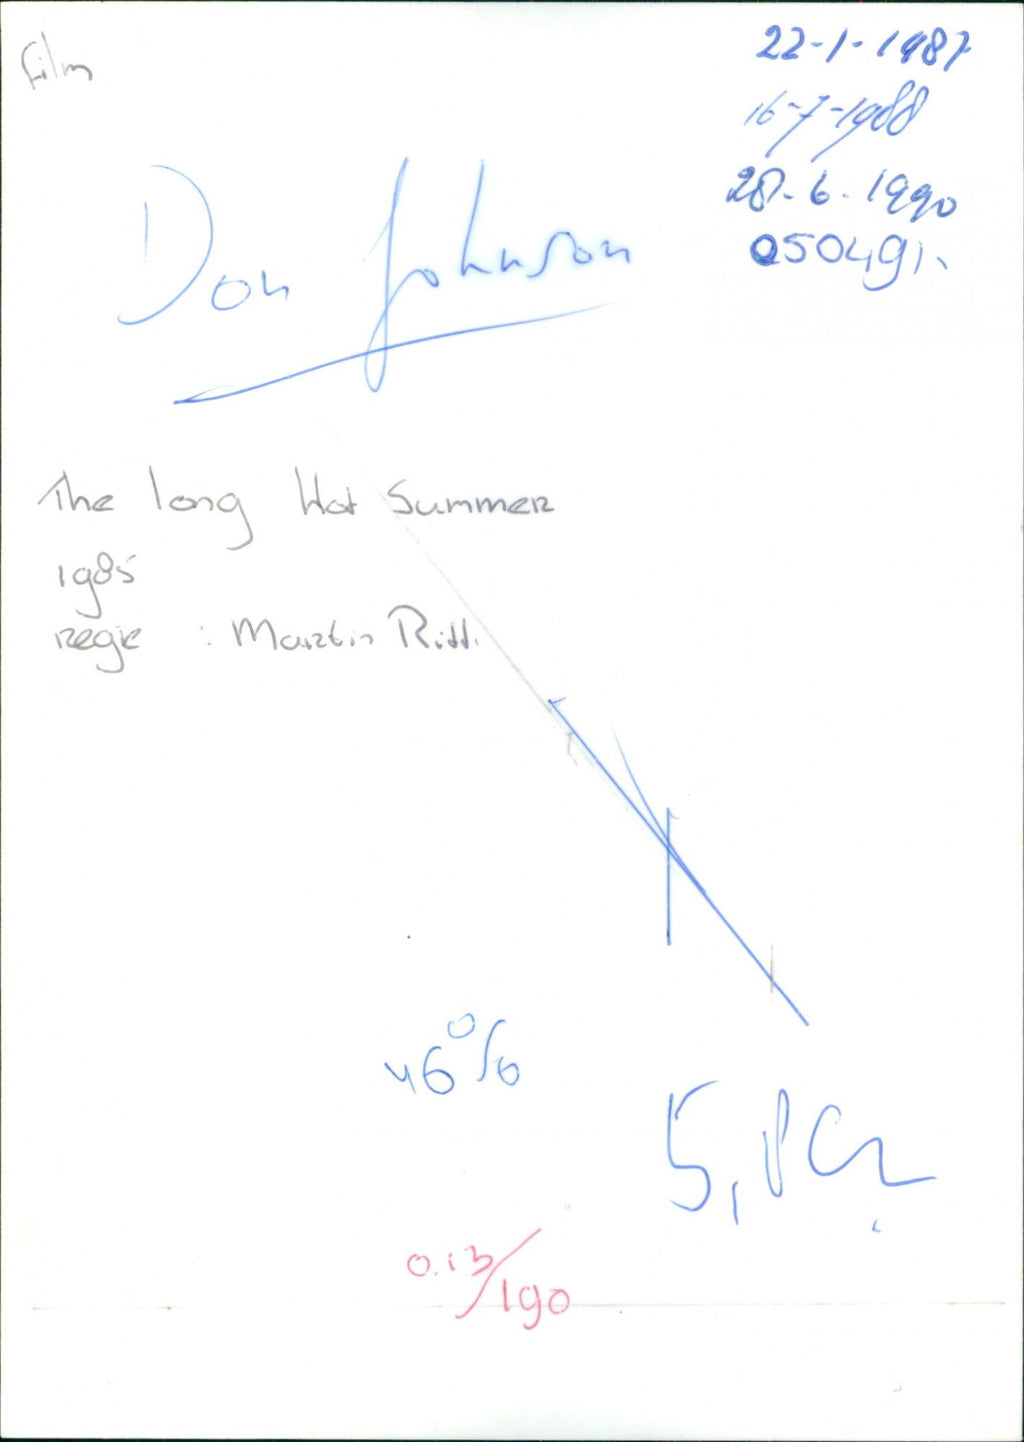 Film
22-1-1987
16-7-1988
28-6-1990
050491.
Don Johnson
The long Hot Summer
1985
regie : Martin Ritt.
46%
5,
0.13/190